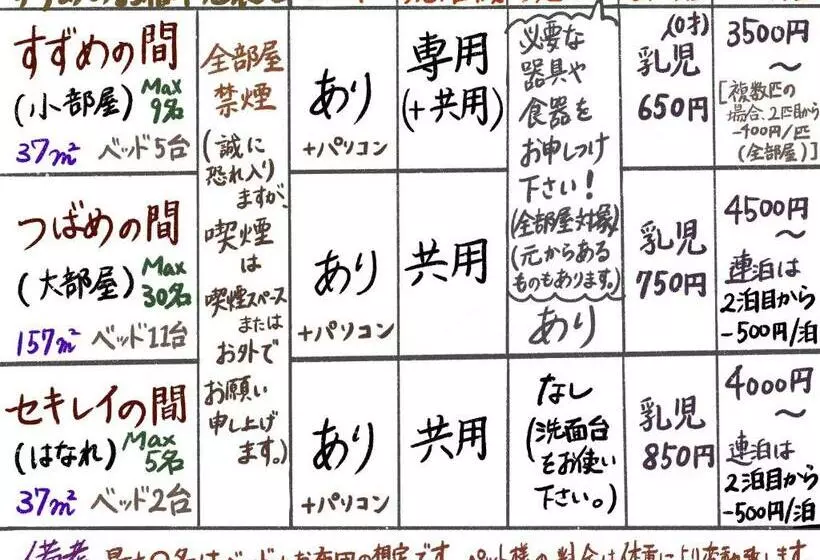 すずめの間
(小部屋)
Max
9名
37㎡ ベッド5台
全部屋
禁煙
(誠に
恐れ入り
ますが、
喫煙
は
喫煙スペース
または
お外で
お願い
申し上げ
ます。)
あり
+パソコン
専用
(+共用)
必要な
器具や
食器を
お申しつけ
下さい!
(全部屋対象)
(元からある
ものもあります。)
(0才)
乳児
650円
3500円
~
[複数匹の
場合、2匹目から
-400円/匹
(全部屋)]
つばめの間
(大部屋)
Max
30名
157㎡ ベッド11台
あり
+パソコン
共用
あり
乳児
750円
4500円
~
連泊は
2泊目から
-500円/泊
セキレイの間
(はなれ)
Max
5名
37㎡ ベッド2台
あり
+パソコン
共用
なし
(洗面台
をお使い
下さい。)
乳児
850円
4000円
~
連泊は
2泊目から
-500円/泊